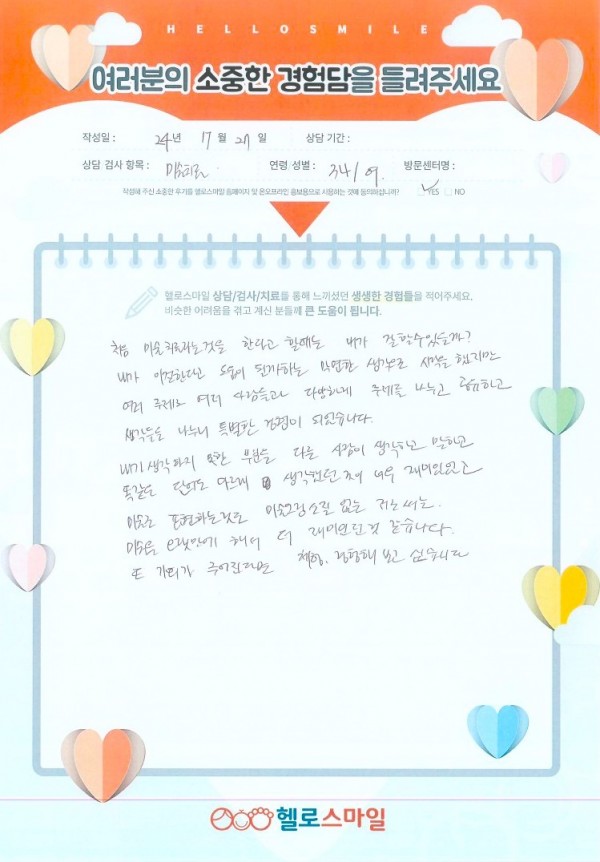 HELLOSMILE
여러분의 소중한 경험담을 들려주세요
작성일 : 24년 17월 27일 상담 기간 :
상담 검사 항목 : 미술치료 연령, 성별 : 34 / 여. 방문센터명 :
작성해 주신 소중한 후기를 헬로스마일 홈페이지 및 온오프라인 홍보용으로 사용하는 것에 동의하십니까? YES NO
헬로스마일 상담/검사/치료를 통해 느끼셨던 생생한 경험들을 적어주세요.
비슷한 어려움을 겪고 계신 분들께 큰 도움이 됩니다.
처음 미술치료라는것을 한다고 할때에는 내가 잘할수있을까?
내가 이런한다고 도움이 될까하는 막연한 생각으로 시작을 했지만
여러 주제로 여러 사람들과 다양하게 주제를 나누고 공유하고
생각들을 나누니 특별한 경험이 되었습니다.
내가 생각하지 못한 부분들 다른 사람이 생각하고 말하고
똑같은 단어도 다르게 생각했던 것이 너무 재미있었고
미술로 표현하는것도 미술그림소질 없는 저로써는
미술을 오랫만에 해서 더 재미있었던것 같습니다.
또 기회가 주어진다면 체험, 경험해 보고 싶습니다
헬로스마일